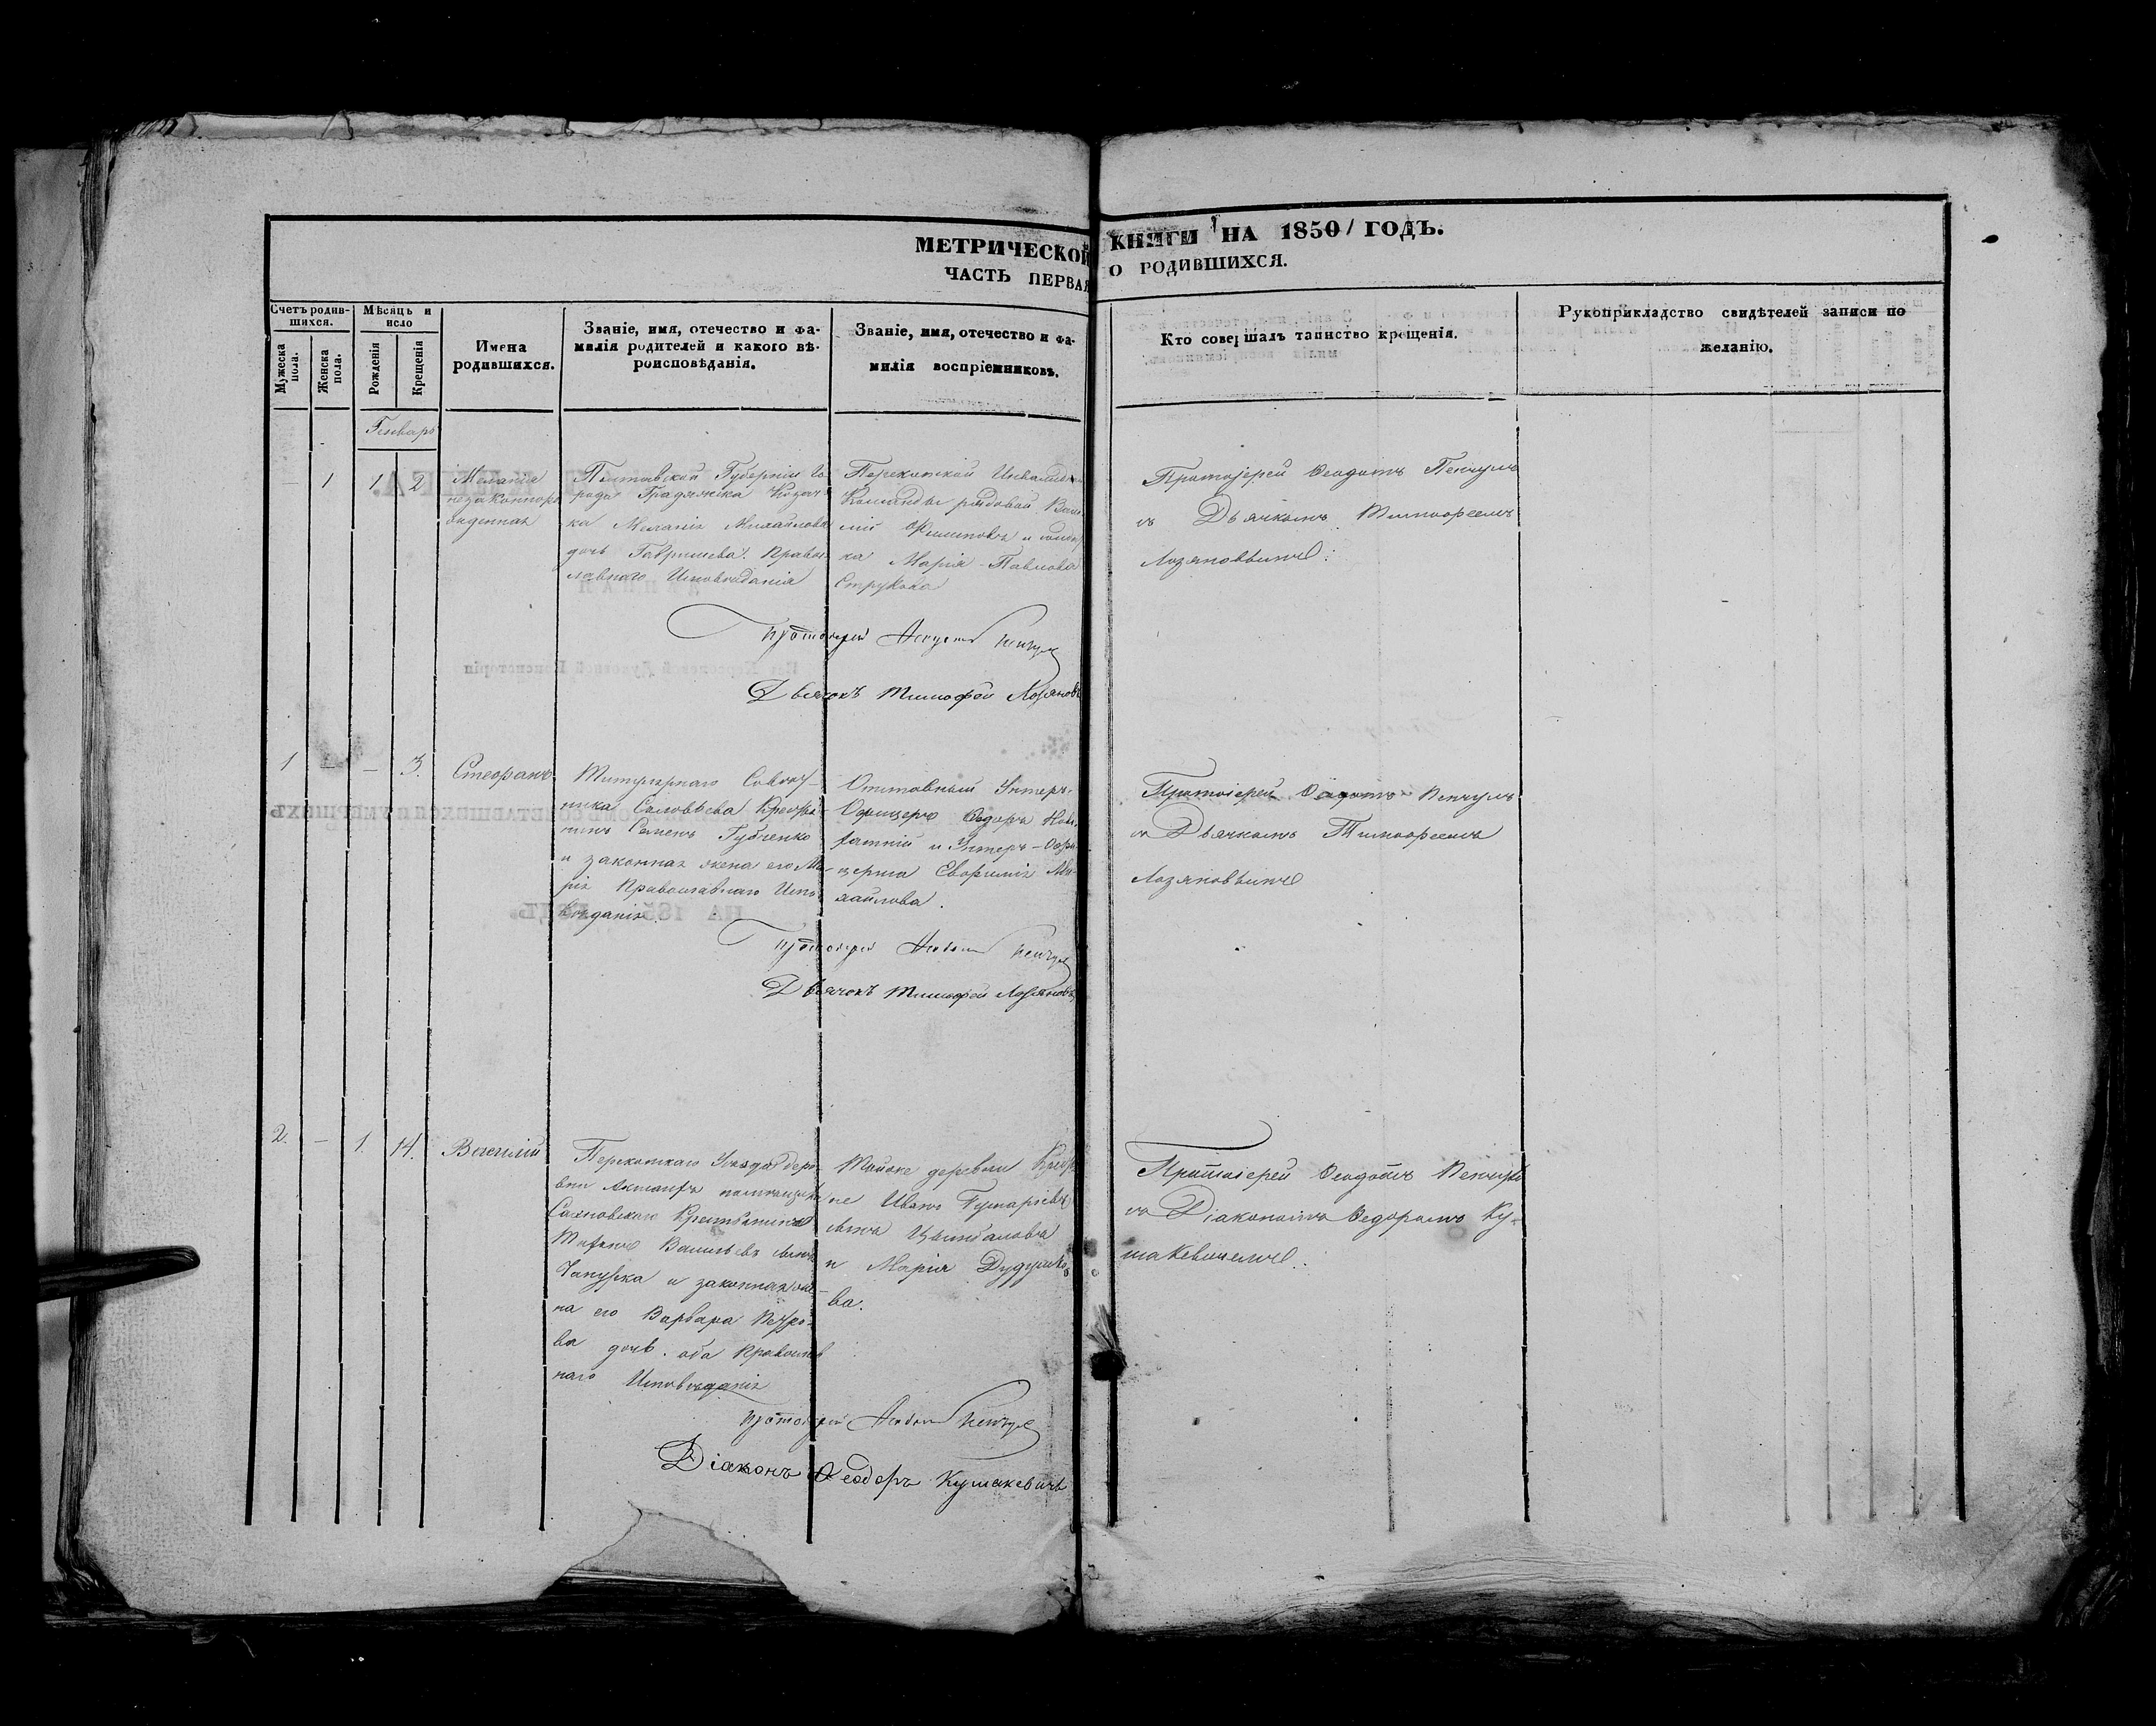 МЕТРИЧЕСКОЙ КНИГИ НА 1850/1 ГОДЪ.
ЧАСТЬ ПЕРВАЯ О РОДИВШИХСЯ.
Счетъ родив-
шихся.
Мужеска пола.
Женска пола.
Мѣсяцъ и
исло
Рожденія
Крещенія
Имена
родившихся.
Званіе, имя, отечество и фа-
милія родителей и какого вѣ-
роисповѣданія.
Званіе, имя, отечество и фа-
милія воспріемниковъ.
Кто совершалъ таинство крещенія.
Рукоприкладство свидѣтелей записи по
желанію.
Генварь
— 1 1 2
Меланія
незаконнорож
денная
Полтавской Губерніи Го
рода Градижска Козач
ка Меланія Михайлова
дочь Гавришева. Правос
лавнаго Исповѣданія
Перекопской Инвалидн
Команды рядовой Васи
лій Филиповъ и
ка Марія Павлова
Струкова
Протоіерей Феодотъ Пенчулъ
съ Дьячкомъ Тимофеемъ
Лозяновымъ:
Протоіерей Феодотъ Пенчулъ
Дьячокъ Тимофей Лозяновъ
1 — — 3.
Стефанъ
Титулярнаго Совѣт-
ника Соловьева Крестья
нинъ Семенъ Губенко
и законная жена его Ма-
рія Православнаго Испо-
вѣданія.
Отставный Унтеръ-
Офицеръ Федоръ
и Унтеръ-Офи
церша Евфимія Ми-
хайлова.
Протоіерей Феодотъ Пенчулъ
съ Дьячкомъ Тимофеемъ
Лозяновымъ
Протоіерей Феодотъ Пенчулъ
Дьячокъ Тимофей Лозяновъ
2. — 1. 14.
Василій
Перекопскаго Уѣзда дере
вни помѣщика
Сахновскаго Крестьянинъ
Васильевъ сынъ
и законная же-
на его Варвара Петро-
ва дочь. оба Православ
наго Исповѣданія
Тойже деревни Крестья
не Иванъ
сынъ
и Марія
ва.
Протоіерей Феодотъ Пенчулъ
съ Діакономъ Федоромъ Ку-
шакевичемъ.
Протоіерей Феодотъ Пенчулъ
Діаконъ Феодоръ Кушакевичъ